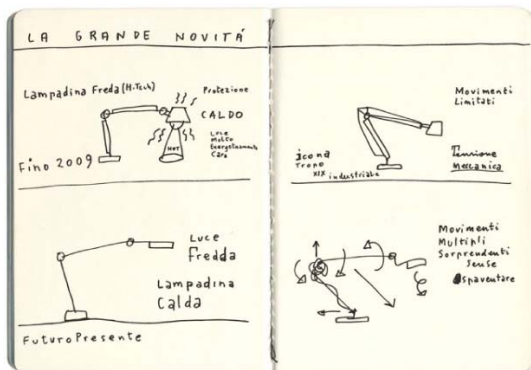 LA GRANDE NOVITÁ
Lampadina Freda (Hi.Tech)
Protezione
CALDO
Luce
Molto
Energeticamente
Cara
HOT
Fino 2009
Luce
Fredda
Lampadina
Calda
Futuro Presente
Movimenti
Limitati
icona
Treno
XIX industriale
Tensione
Meccanica
Movimenti
Multipli
Sorprendenti
Sense
spaventare